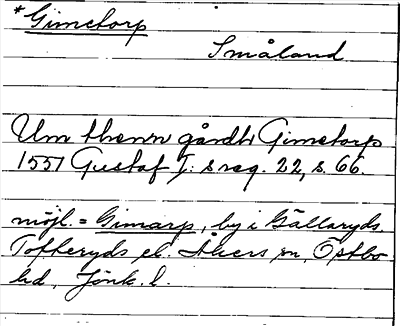 *Gimetorp
Småland
Um thenn gårdh Gimetorp
1551 Gustaf I:s reg. 22, s. 66.
möjl. = Gimarp, by i Gällaryds,
Tofteryds el. Åkers sn, Östbo
hd, Jönk. l.